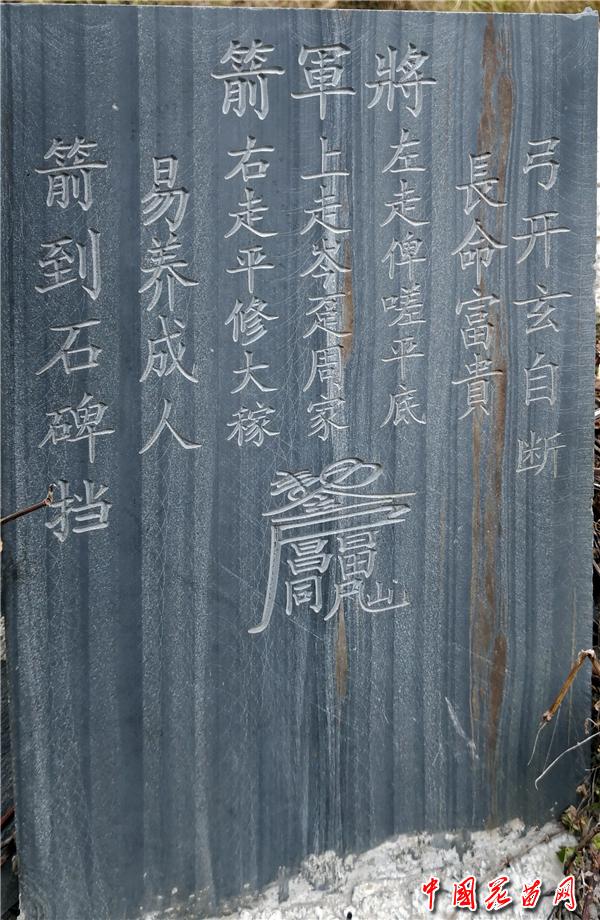 將軍箭
弓开玄自断
長命富貴
左走俾嗟平底
上走岑周家
右走平修大稼
易养成人
箭到石碑挡
中国花苗网